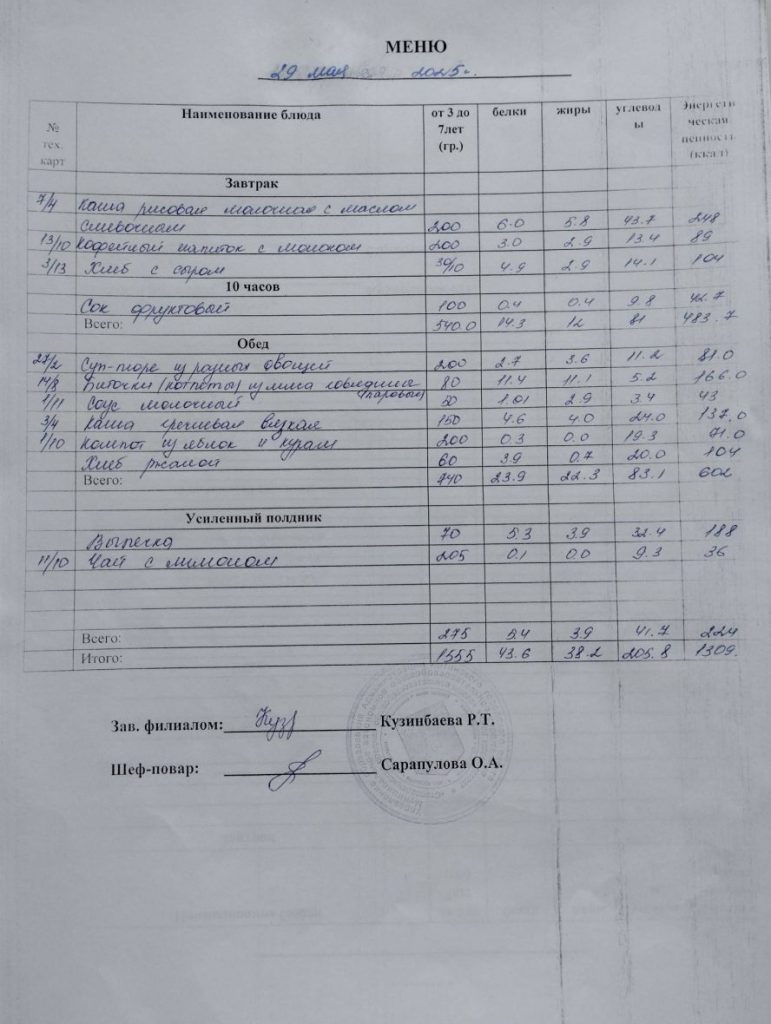 МЕНЮ
29 мая 2025 г.
№ тех. карт Наименование блюда от 3 до 7лет (гр.) белки жиры углеводы Энергетическая ценность (ккал)
Завтрак
7/4 Каша рисовая молочная с маслом
сливочным 200 6.0 5.8 43.7 248
13/10 Кофейный напиток с молоком 200 3.0 2.9 13.4 89
3/13 Хлеб с сыром 30/10 4.9 2.9 14.1 104
10 часов
Сок фруктовый 100 0.4 0.4 9.8 42.7
Всего: 540.0 14.3 12 81 483.7
Обед
27/2 Суп-пюре из разных овощей 200 2.7 3.6 11.2 81.0
14/8 Биточки (котлеты) из мяса говядины (паровые) 80 11.4 11.1 5.2 166.0
1/11 Соус молочный 50 1.01 2.9 3.4 43
3/4 Каша гречневая вязкая 150 4.6 4.0 24.0 137.0
1/10 Компот из яблок и кураги 200 0.3 0.0 19.3 71.0
Хлеб ржаной 60 3.9 0.7 20.0 104
Всего: 740 23.9 22.3 83.1 602
Усиленный полдник
Выпечка 70 5.3 3.9 32.4 188
11/10 Чай с лимоном 205 0.1 0.0 9.3 36
Всего: 275 5.4 3.9 41.7 224
Итого: 1555 43.6 38.2 205.8 1309.
Зав. филиалом: Кузинбаева Р.Т.
Шеф-повар: Сарапулова О.А.